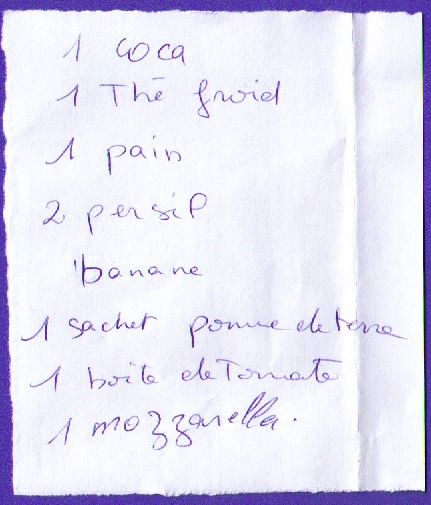 1 coca
1 Thé froid
1 pain
2 persil
banane
1 sachet pomme de terre
1 boite de Tomate
1 mozzarella.